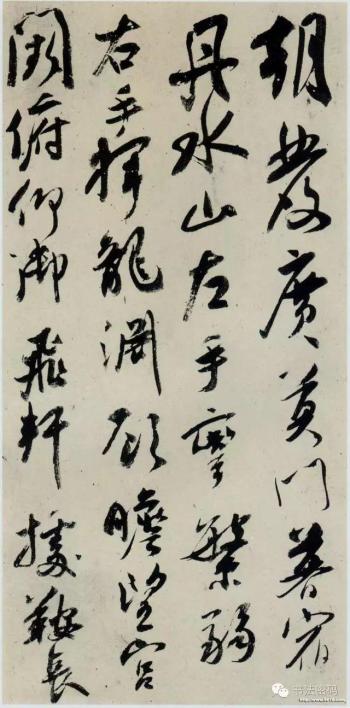 朝發廣莫門暮宿
丹水山左手彎繁弱
右手揮龍淵顧瞻望宮
闕俯仰御飛軒據鞍長
书法密码